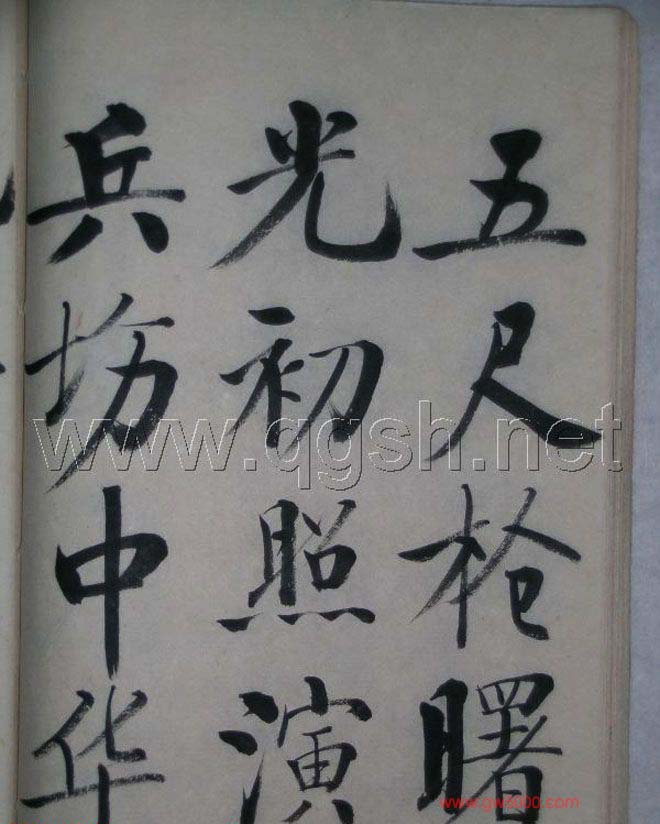 五尺枪曙
光初照演
兵坊中华
www.qgsh.net
www.gw8000.com